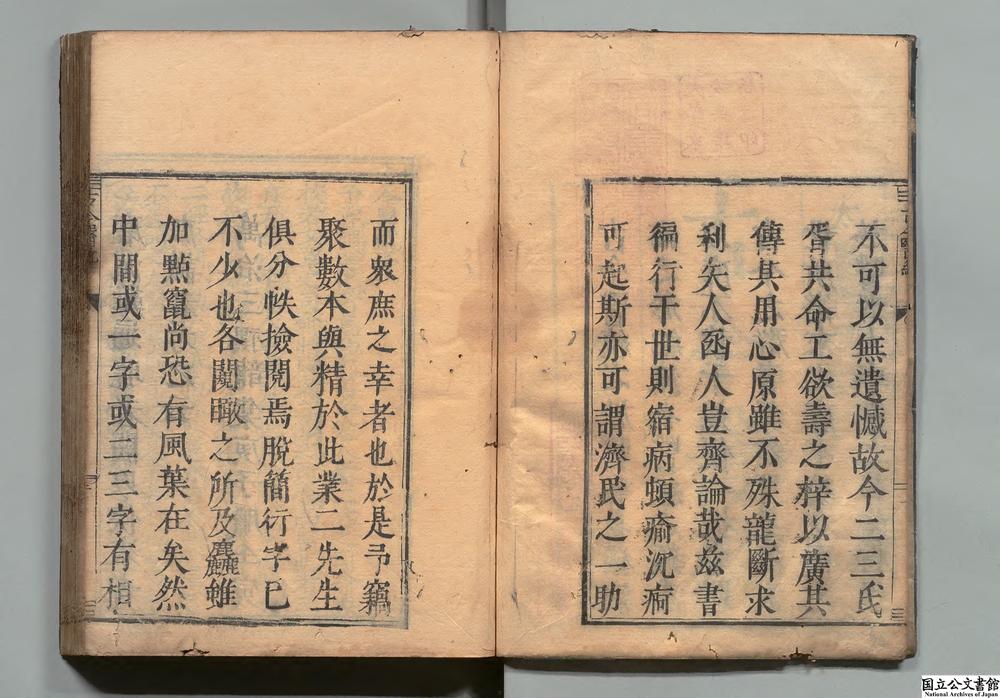 不可以無遺憾故今二三氏
胥共命工欲壽之梓以廣其
傳其用心原雖不殊龍斷求
利矢人函人豈齊論哉茲書
徧行于世則宿病頓瘉沉痾
可起斯亦可謂濟民之一助
而衆庶之幸者也於是予竊
聚數本與精於此業二先生
俱分帙撿閱焉脫簡衍字已
不少也各闚瞰之所及麤雖
加點竄尚恐有風葉在矣然
中間或一字或二三字有相
国立公文書館
National Archives of Japan